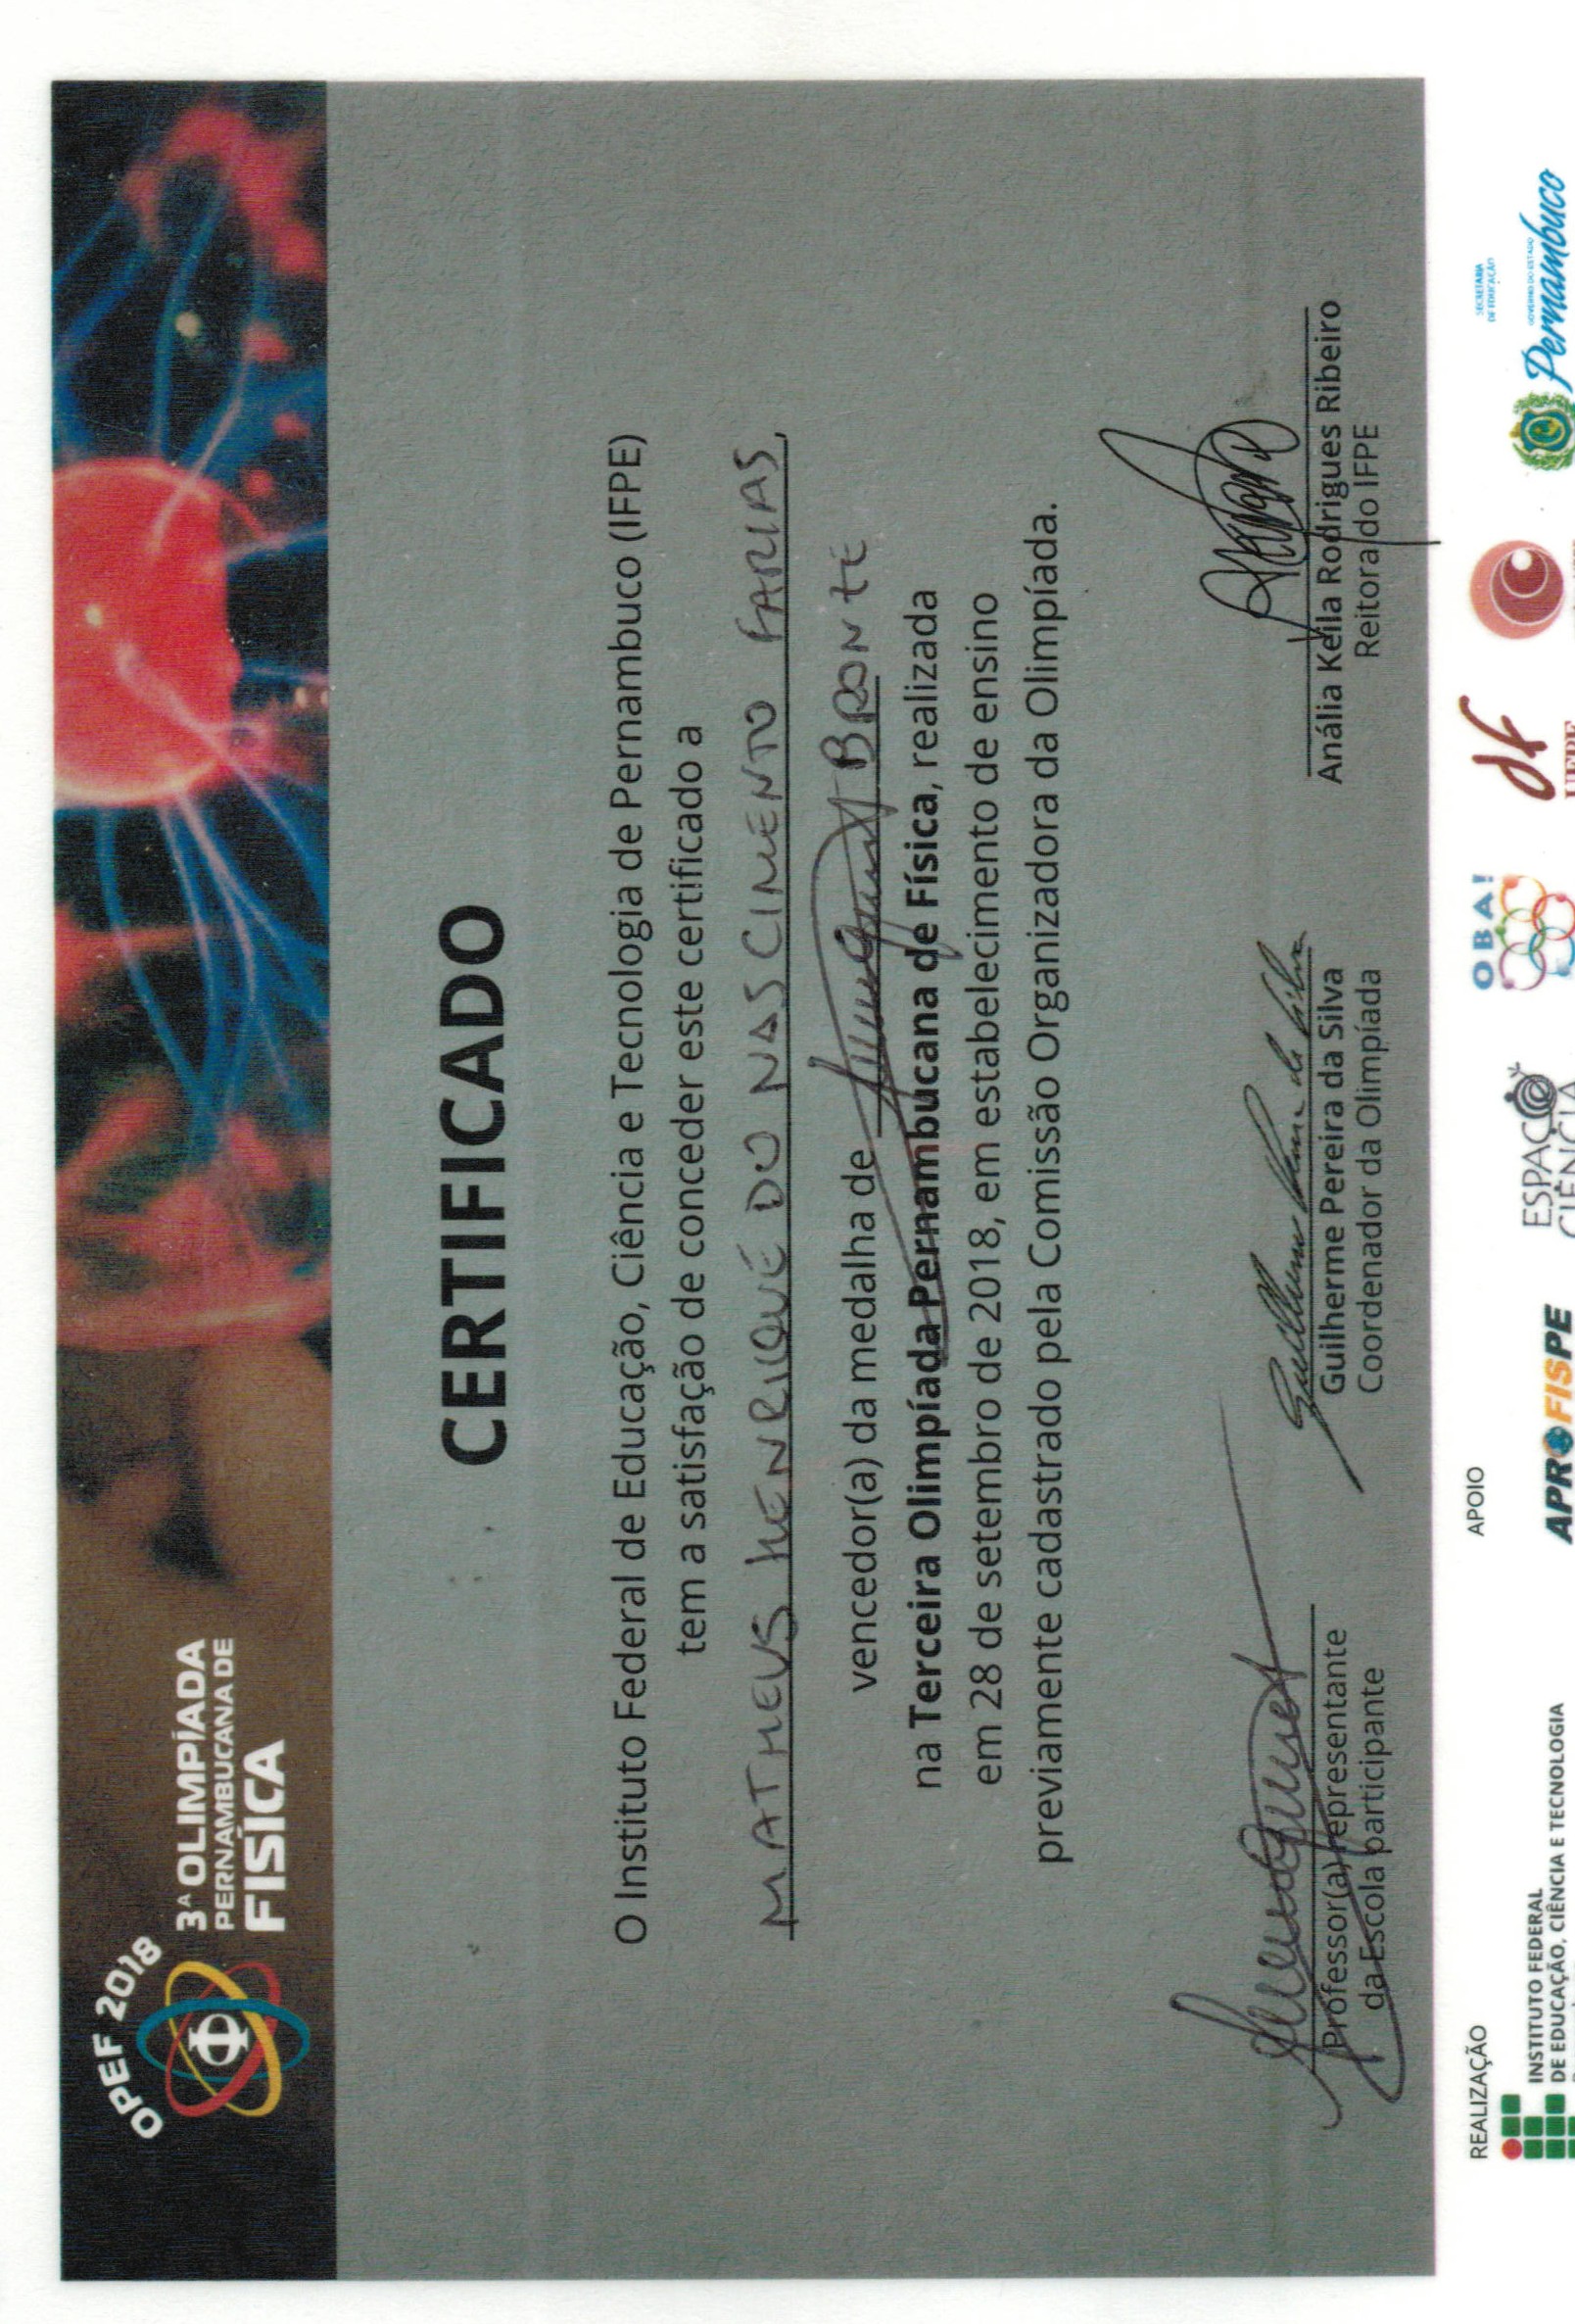 OPEF 2018
3ª OLIMPÍADA
PERNAMBUCANA DE
FISÍCA
CERTIFICADO
O Instituto Federal de Educação, Ciência e Tecnologia de Pernambuco (IFPE)
tem a satisfação de conceder este certificado a
MATHEUS HENRIQUE DO NASCIMENTO FARIAS,
vencedor(a) da medalha de BRONZE
na Terceira Olimpíada Pernambucana de Física, realizada
em 28 de setembro de 2018, em estabelecimento de ensino
previamente cadastrado pela Comissão Organizadora da Olimpíada.
Guilherme Pereira da Silva
Professor(a) representante
da Escola participante
Guilherme Pereira da Silva
Coordenador da Olimpíada
Anália Keila Rodrigues Ribeiro
Reitora do IFPE
REALIZAÇÃO
INSTITUTO FEDERAL
DE EDUCAÇÃO, CIÊNCIA E TECNOLOGIA
APOIO
APROFISPE
ESPAÇO
CIÊNCIA
OBA!
df
UFPE
SECRETARIA
DE EDUCAÇÃO
GOVERNO DO ESTADO
Pernambuco